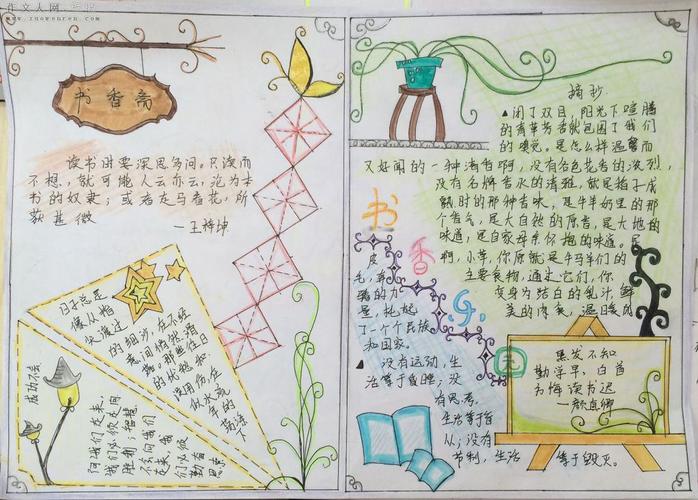 作文人网
www.zuowenren.com
书香斋
读书时要深思多问。只读而
不想,就可能人云亦云,沦为本
书的奴隶;或者走马看花,所
获甚微
—王梓坤
日子总是
像从指
尖渡过
的细沙,在不经
意间悄然滑
落。那些往日
的忧愁和
误用伤,在
似水流
年的
荡涤下
成功不会
向我们走来,
我们必须走向
胜利;智慧
不会向我们
走来,我
们必须
勤奋
思
摘抄
▲闭了双目,阳光下喧腾
的青草芳香就包围了我们
的嗅觉。是怎么样温馨而
又好闻的一种清香啊,没有各色花香的浓烈,
没有名牌香水的清雅,就是稻子成
熟时的那种香味,是牛羊奶里的那
个香气,是大自然的原香,是大地的
味道,是自家母亲你抱的味道。是
啊,小草,你原就是牛马羊们的
主要食物,通过它们,你
变身为洁白的乳汁,鲜
美的肉类,温暖的
皮
毛,奔
腾的力
量,托起
了一个个民族
和国家。
书香
没有运动,生
活等于昏睡;没
有思考,
生活等于盲
从;没有
节制,生活
等于毁灭。
黑发不知
勤学早,白首
方悔读书迟
—颜真卿